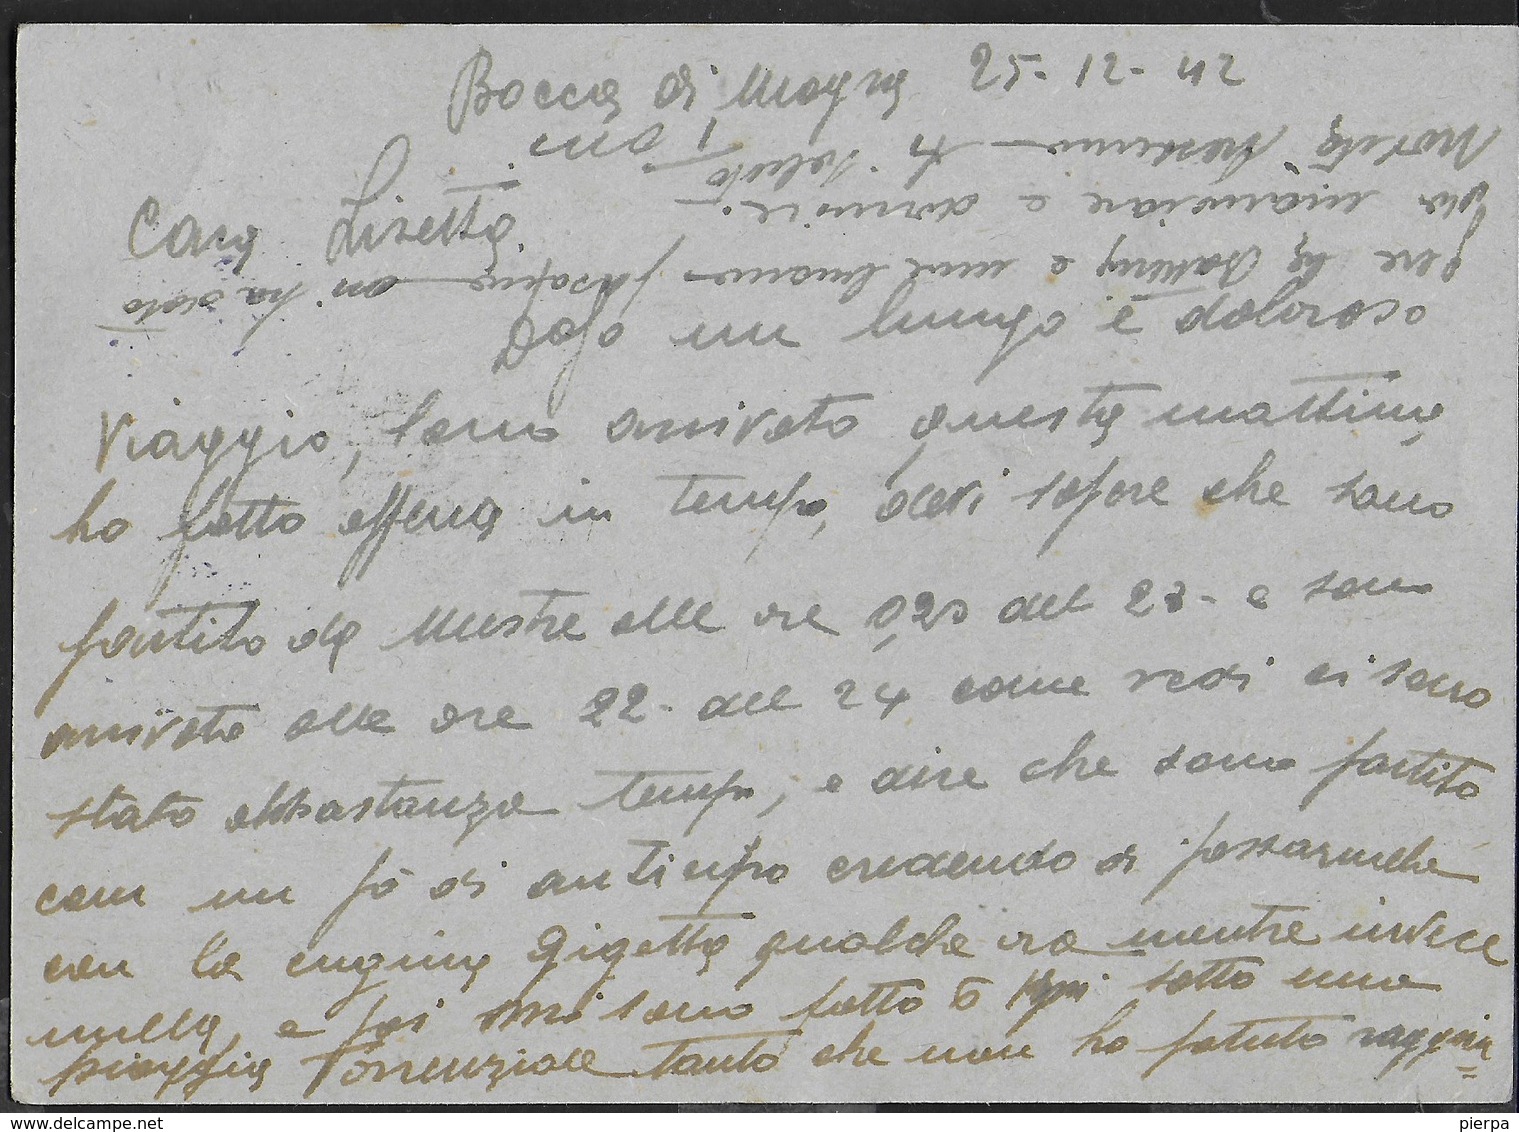 Bocca di Magra 25-12-42
Cara Lisetta
Dopo un lungo e doloroso
viaggio, sono arrivato questa mattina
ho fatto appena in tempo, devi sapere che sono
partito da Mestre alle ore 0,20 del 23- e sono
arrivato alle ore 22- del 24 come vedi ci sono
stato abbastanza tempo, e dire che sono partito
con un pò di anticipo credendo di passarmela
con la cugina Gigetta qualche ora mentre invece
nulla, e poi mi sono fatto 6 Km sotto una
pioggia Torrenziale tanto che non ho potuto raggiun=
gere la e un buono mi ha dato
già mangiare e dormire.
Novità nessuna ti saluto
tuo
delcampe.net
pierpa